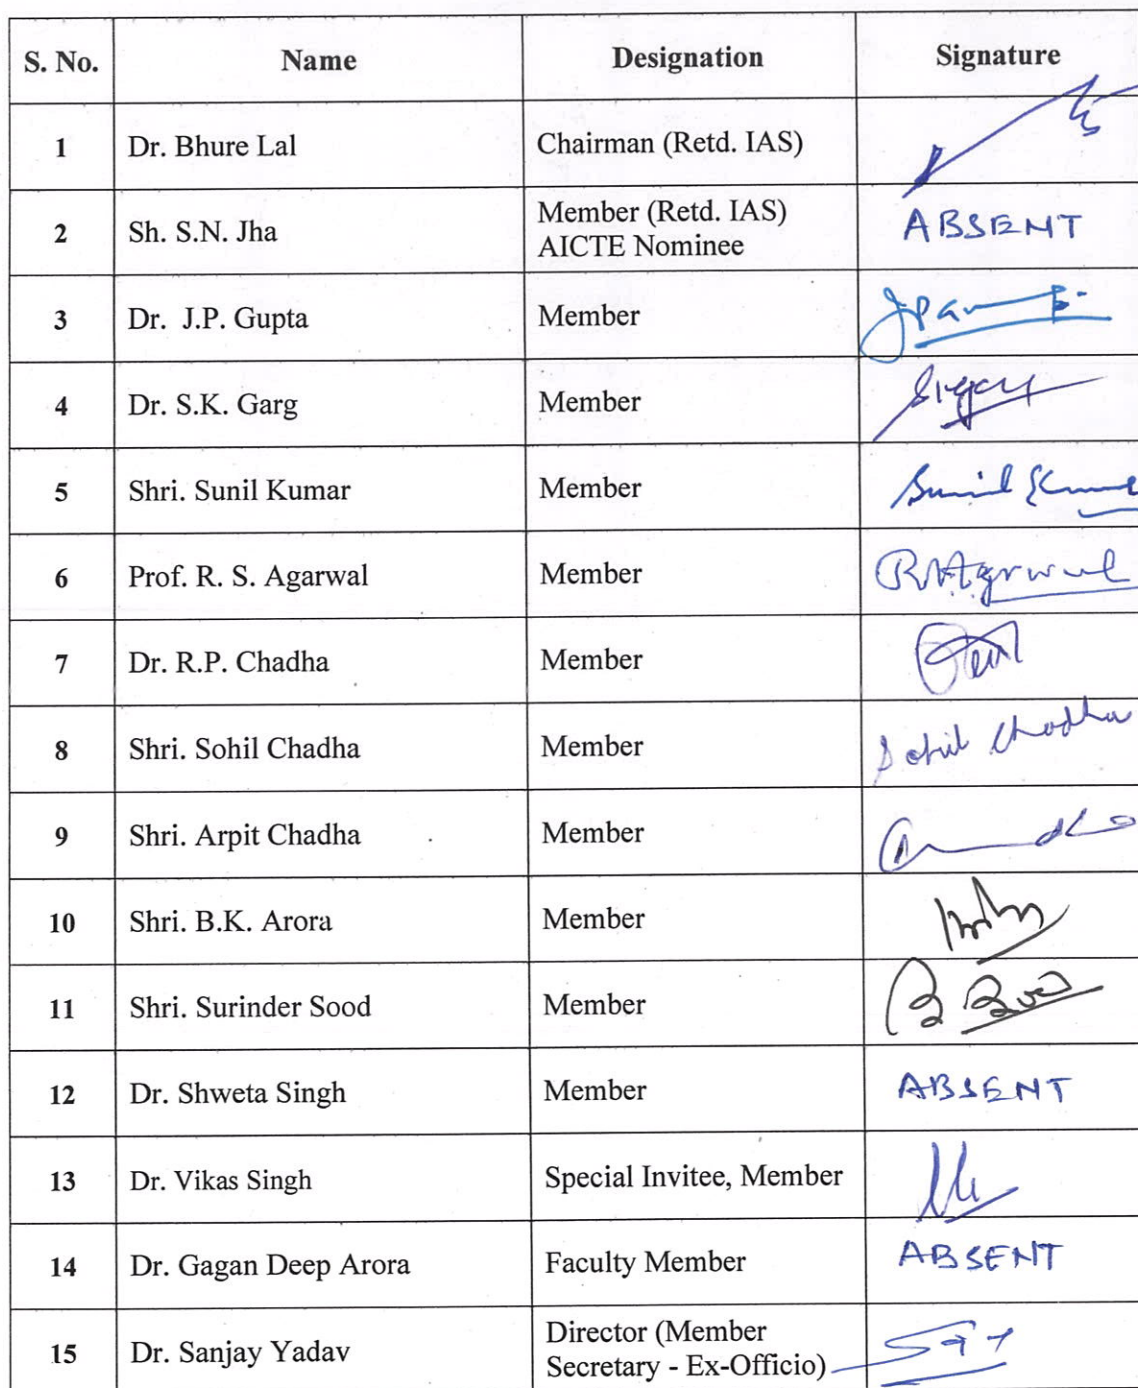 S. No. Name Designation Signature
1 Dr. Bhure Lal Chairman (Retd. IAS)
2 Sh. S.N. Jha Member (Retd. IAS) ABSENT
AICTE Nominee
3 Dr. J.P. Gupta Member
4 Dr. S.K. Garg Member
5 Shri. Sunil Kumar Member Sunil Kumar
6 Prof. R. S. Agarwal Member
7 Dr. R.P. Chadha Member
8 Shri. Sohil Chadha Member Sohil Chadha
9 Shri. Arpit Chadha Member
10 Shri. B.K. Arora Member
11 Shri. Surinder Sood Member
12 Dr. Shweta Singh Member ABSENT
13 Dr. Vikas Singh Special Invitee, Member
14 Dr. Gagan Deep Arora Faculty Member ABSENT
15 Dr. Sanjay Yadav Director (Member
Secretary - Ex-Officio)